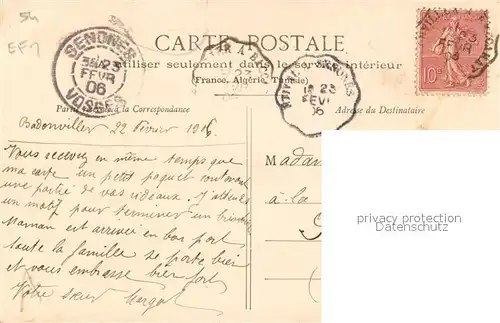 54
EF1
CARTE POSTALE
à utiliser seulement dans le service intérieur
(France, Algérie, Tunisie)
SENONES
3E/23
FEVR
06
VOSGES
23
SENONES
23
FEV
06
10c
Partie à la Correspondance
Adresse du Destinataire
Badonviller 22 Février 1906
Vous recevrez en même temps que
ma carte un petit paquet contenant
une partie de vos rideaux. J'attends
un motif pour terminer un
Maman est arrivée en bon port
toute la famille se porte bien
et vous embrasse bien fort
Votre sœur Margot
Madame
à la
privacy protection
Datenschutz